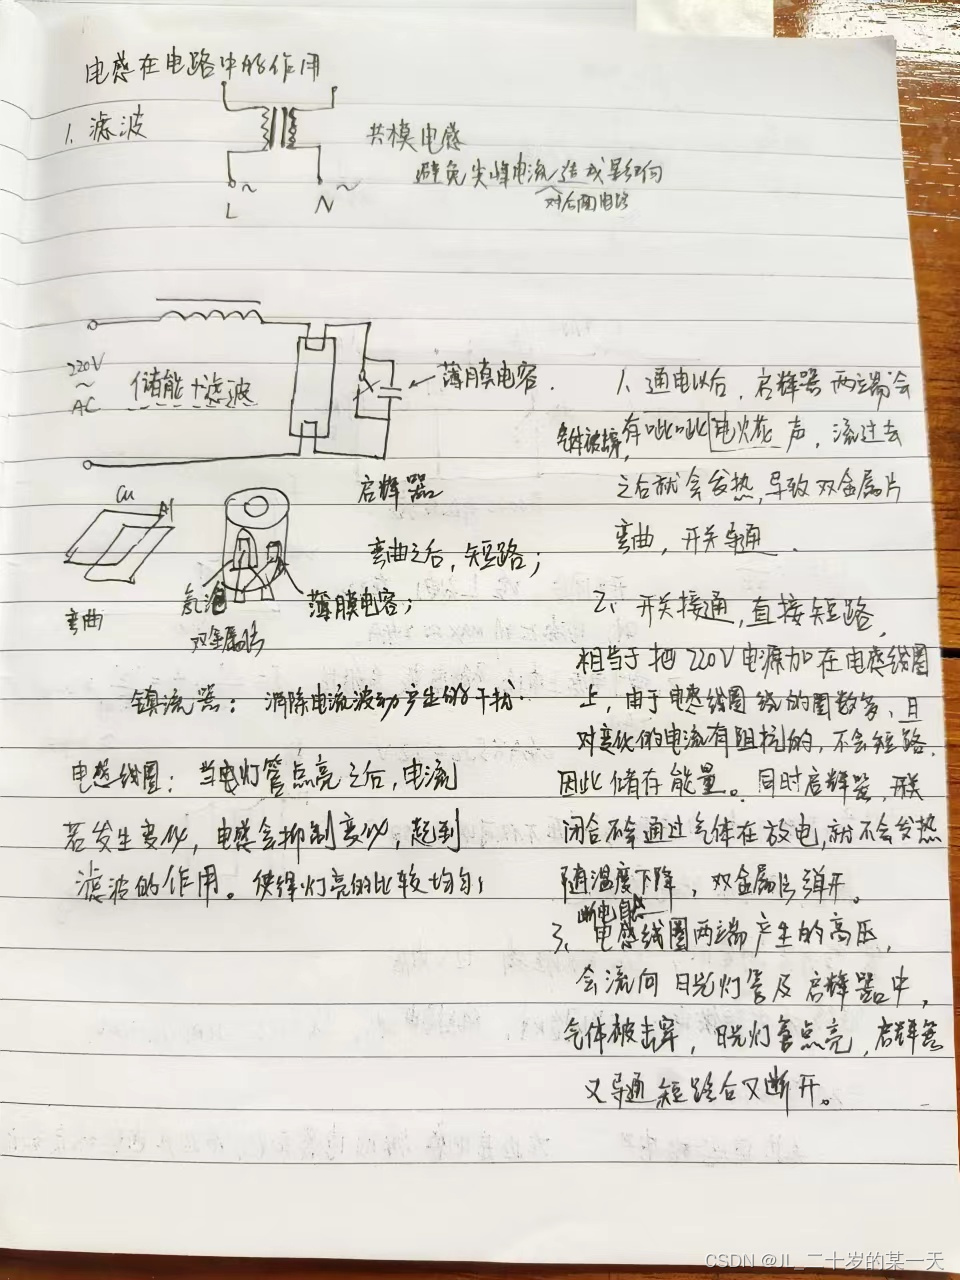 电感在电路中的作用
1、滤波
共模电感
避免尖峰电流造成影响
对后面电路
~
~
L
N
220V
~
AC
储能+滤波
薄膜电容
启辉器
Cu
Al
弯曲
氖泡
双金属片
薄膜电容；
弯曲之后，短路；
镇流器：消除电流波动产生的干扰
电感线圈：当电灯管点亮之后，电流
若发生变化，电感会抑制变化，起到
滤波的作用。使得灯亮的比较均匀；
1、通电以后，启辉器两端会
气体被击穿，有呲呲电火花声，流过去
之后就会发热，导致双金属片
弯曲，开关导通．
2、开关接通，直接短路，
相当于把220V电源加在电感线圈
上，由于电感线圈绕的圈数多，且
对变化的电流有阻抗的，不会短路．
因此储存能量。同时启辉器，开关
闭合不会通过气体在放电，就不会发热
随温度下降，双金属片弹开。
断电自感
3、电感线圈两端产生的高压，
会流向日光灯管及启辉器中，
气体被击穿，日光灯管点亮，启辉器
又导通短路后又断开。
CSDN @JL_二十岁的某一天